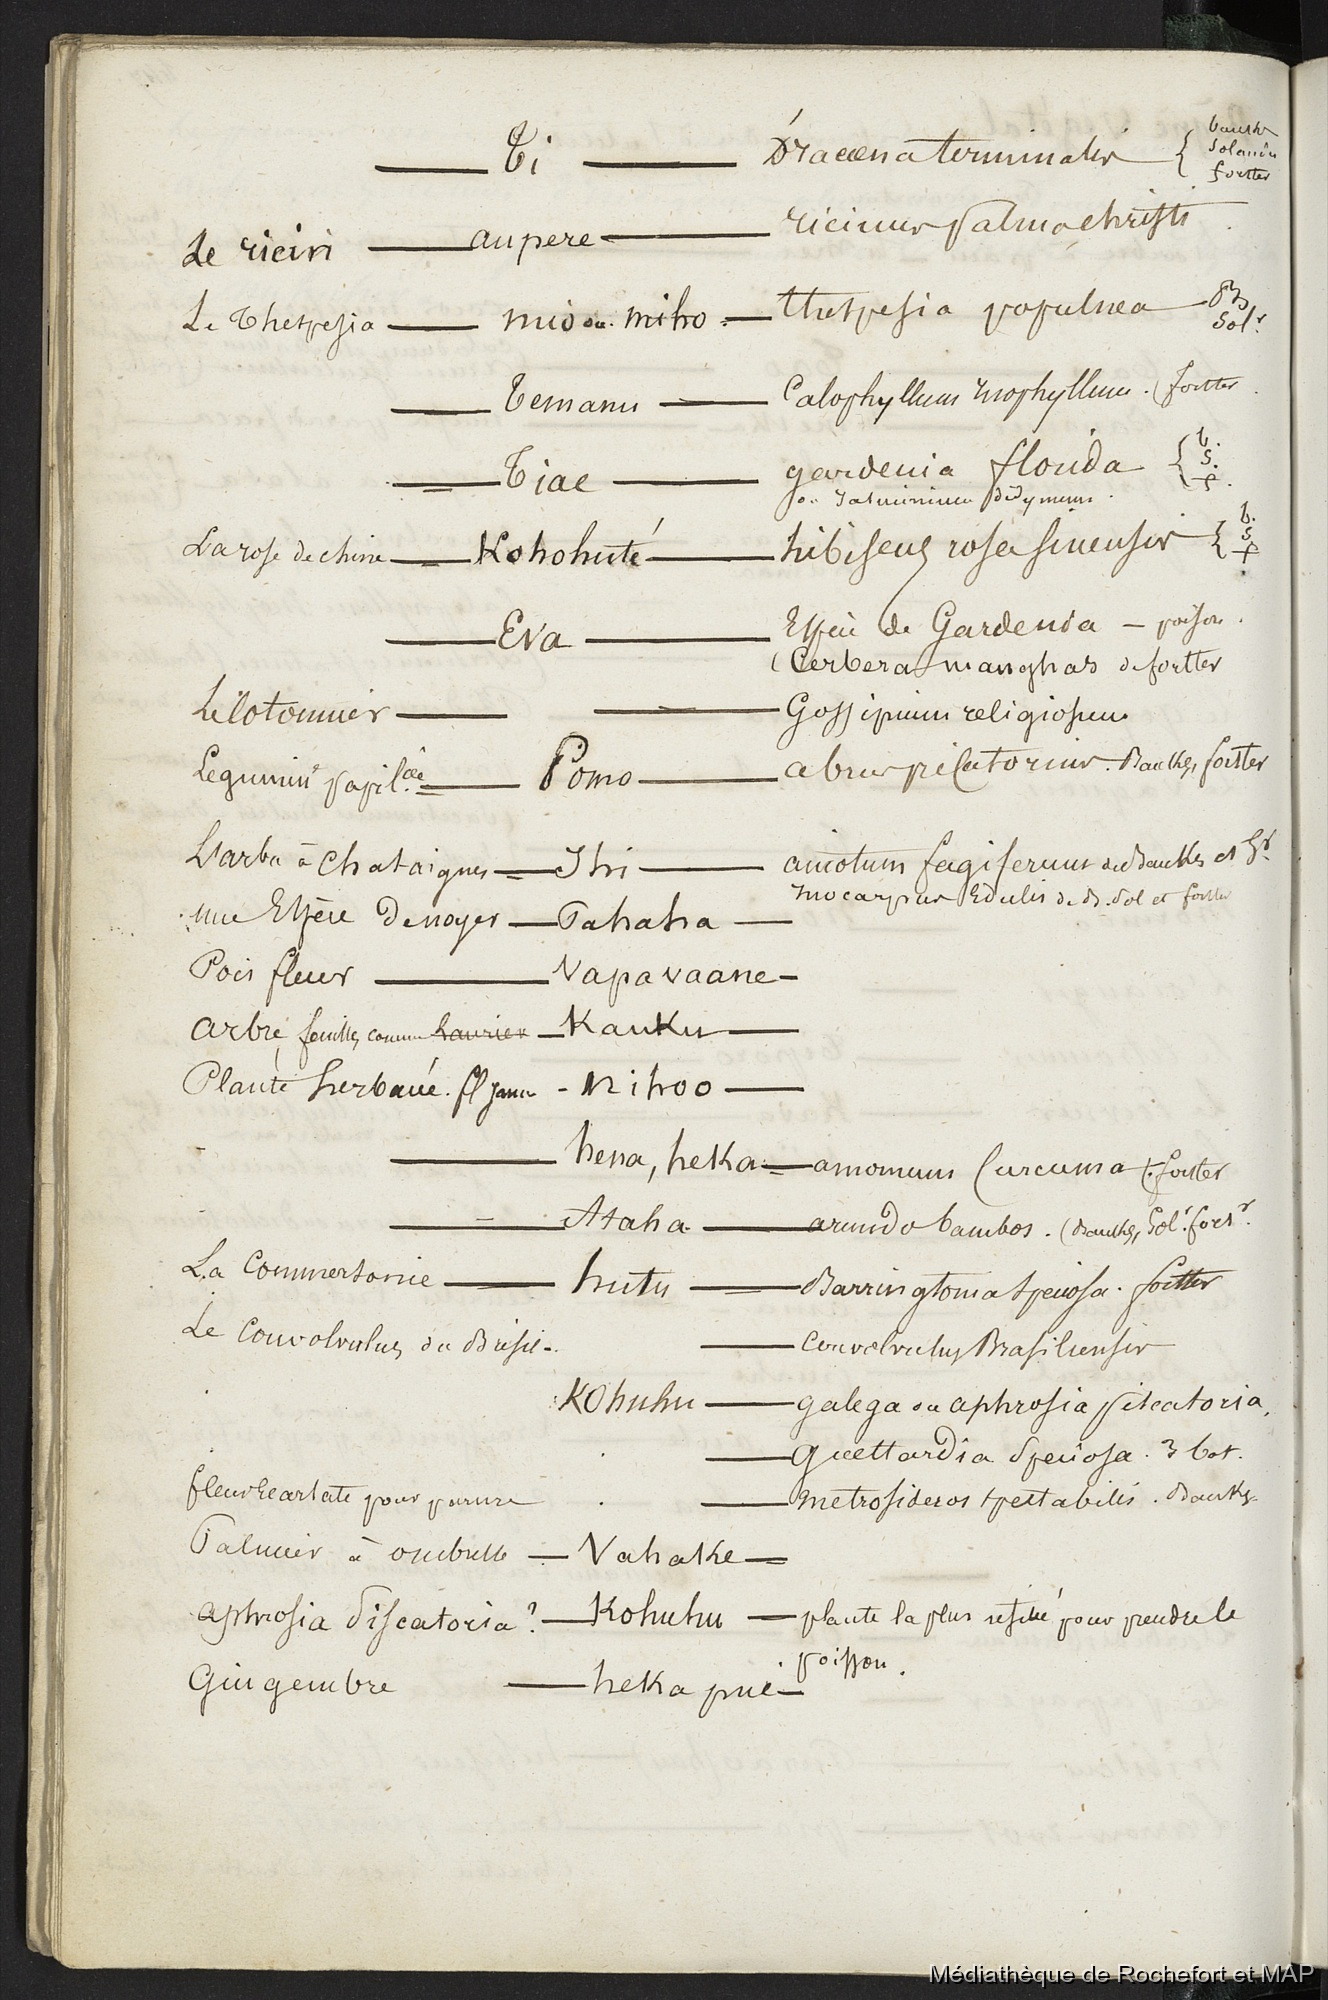 Ti — Dracœna terminalis { Banks
Solander
forster
Le ricin — aupere — ricinus palma christi
Le Thespesia — mio ou miho — thespesia populnea — B
Sol.r
Temanu — Calophyllum inophyllum. (forster
Tiae — gardenia florida { b.
S.
f.
ou Jasminimum didymum.
La rose de chine — Kohohuté — hibiscus rosa sinensis { b.
S.
f.
Eva — Espèce de Gardenia — poison.
(Cerbera manghas de forster
Le Cotonnier — Gossipium religiosum
Legumin.se papil.cée — Pomo — abrus precatorius. Banks, forster
L'arbre à chataignes — Ihi — aniotum fagiferum de Banks et S.r
Inocarpus Edulis de B. Sol et forster
une Espèce de noyer — Tahaha —
Pois fleur — Vapavaane —
arbre, feuilles comme Laurier — Kauku —
Plante herbacée. fl jaune - Nihoo —
hena, heka — amomum Curcuma (. forster
Ataha — arundo bambos. (Banks, Sol.r forst.r
La Commersonie — hutu — Barringtonia speciosa. forster
Le Convolvulus du Brésil — convolvulus Brasiliensis
Kohuhu — galega ou aphrosia piscatoria,
— guettardia speciosa. 3 bot.
fleur Ecarlate pour parure — metrosideros spectabilis. Banks
Palmier à ombrelle — Vahake —
aphrosia Piscatoria? — Kohuhu — plante la plus usitée pour prendre le
poisson.
Gingembre — heka pué —
Médiathèque de Rochefort et MAP